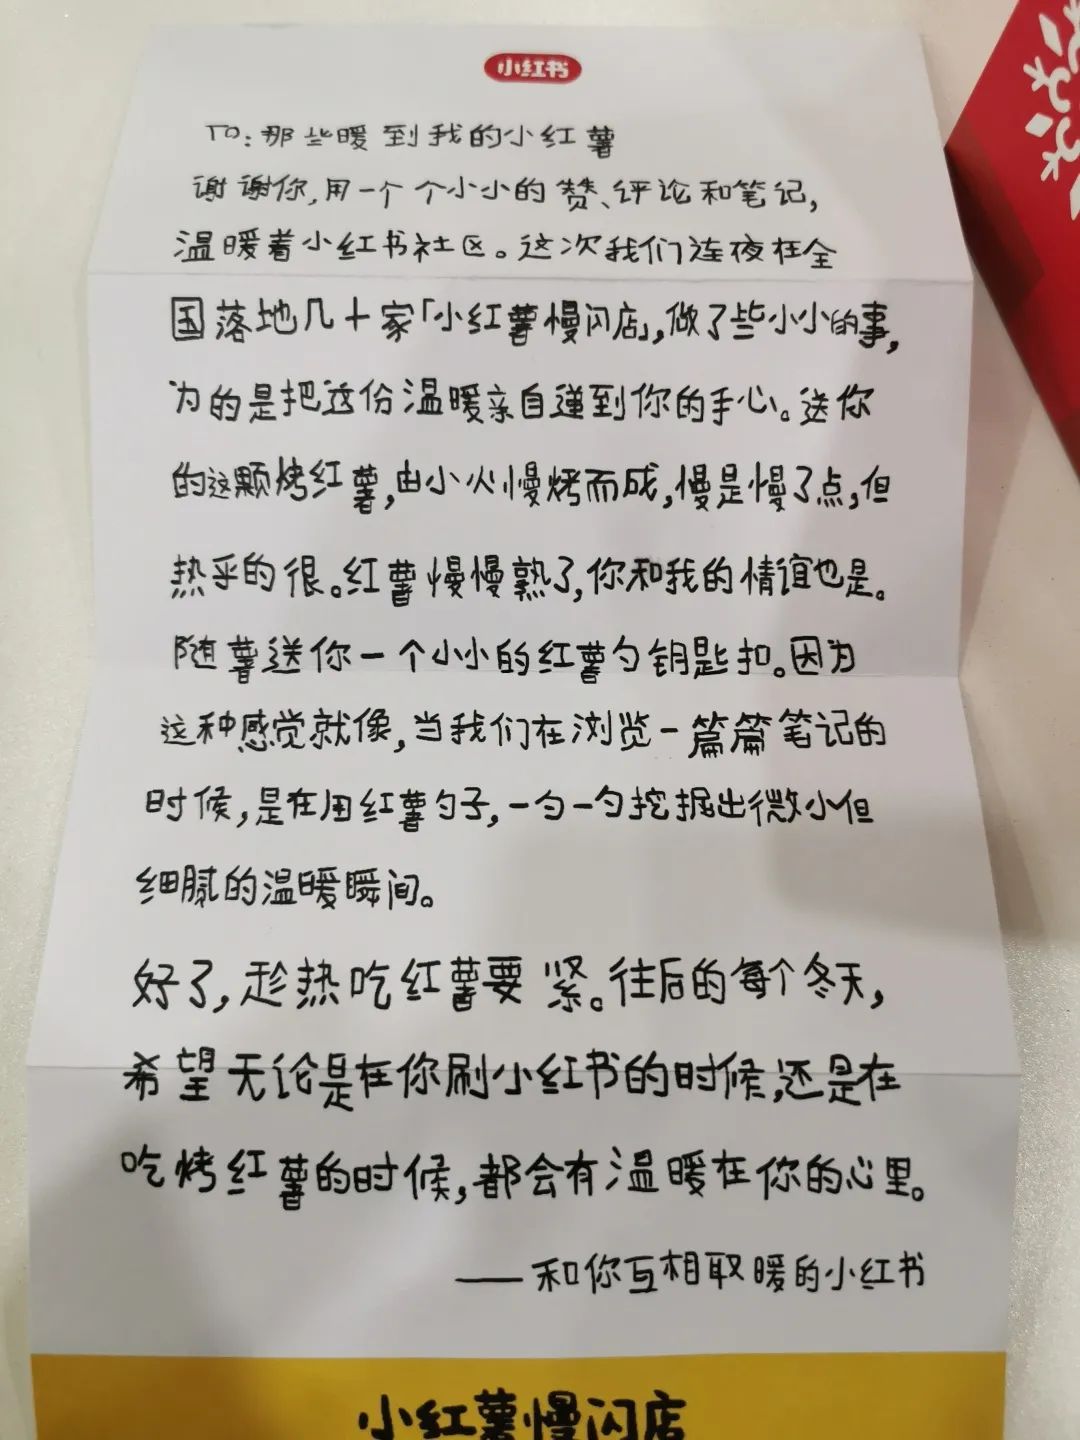 小红书
TO：那些暖到我的小红薯
谢谢你，用一个个小小的赞、评论和笔记，
温暖着小红书社区。这次我们连夜在全
国落地几十家「小红薯慢闪店」，做了些小小的事，
为的是把这份温暖亲自递到你的手心。送你
的这颗烤红薯，由小火慢烤而成，慢是慢了点，但
热乎的很。红薯慢慢熟了，你和我的情谊也是。
随薯送你一个小小的红薯勺钥匙扣。因为
这种感觉就像，当我们在浏览一篇篇笔记的
时候，是在用红薯勺子，一勺一勺挖掘出微小但
细腻的温暖瞬间。
好了，趁热吃红薯要紧。往后的每个冬天，
希望无论是在你刷小红书的时候，还是在
吃烤红薯的时候，都会有温暖在你的心里。
——和你互相取暖的小红书
小红薯慢闪店